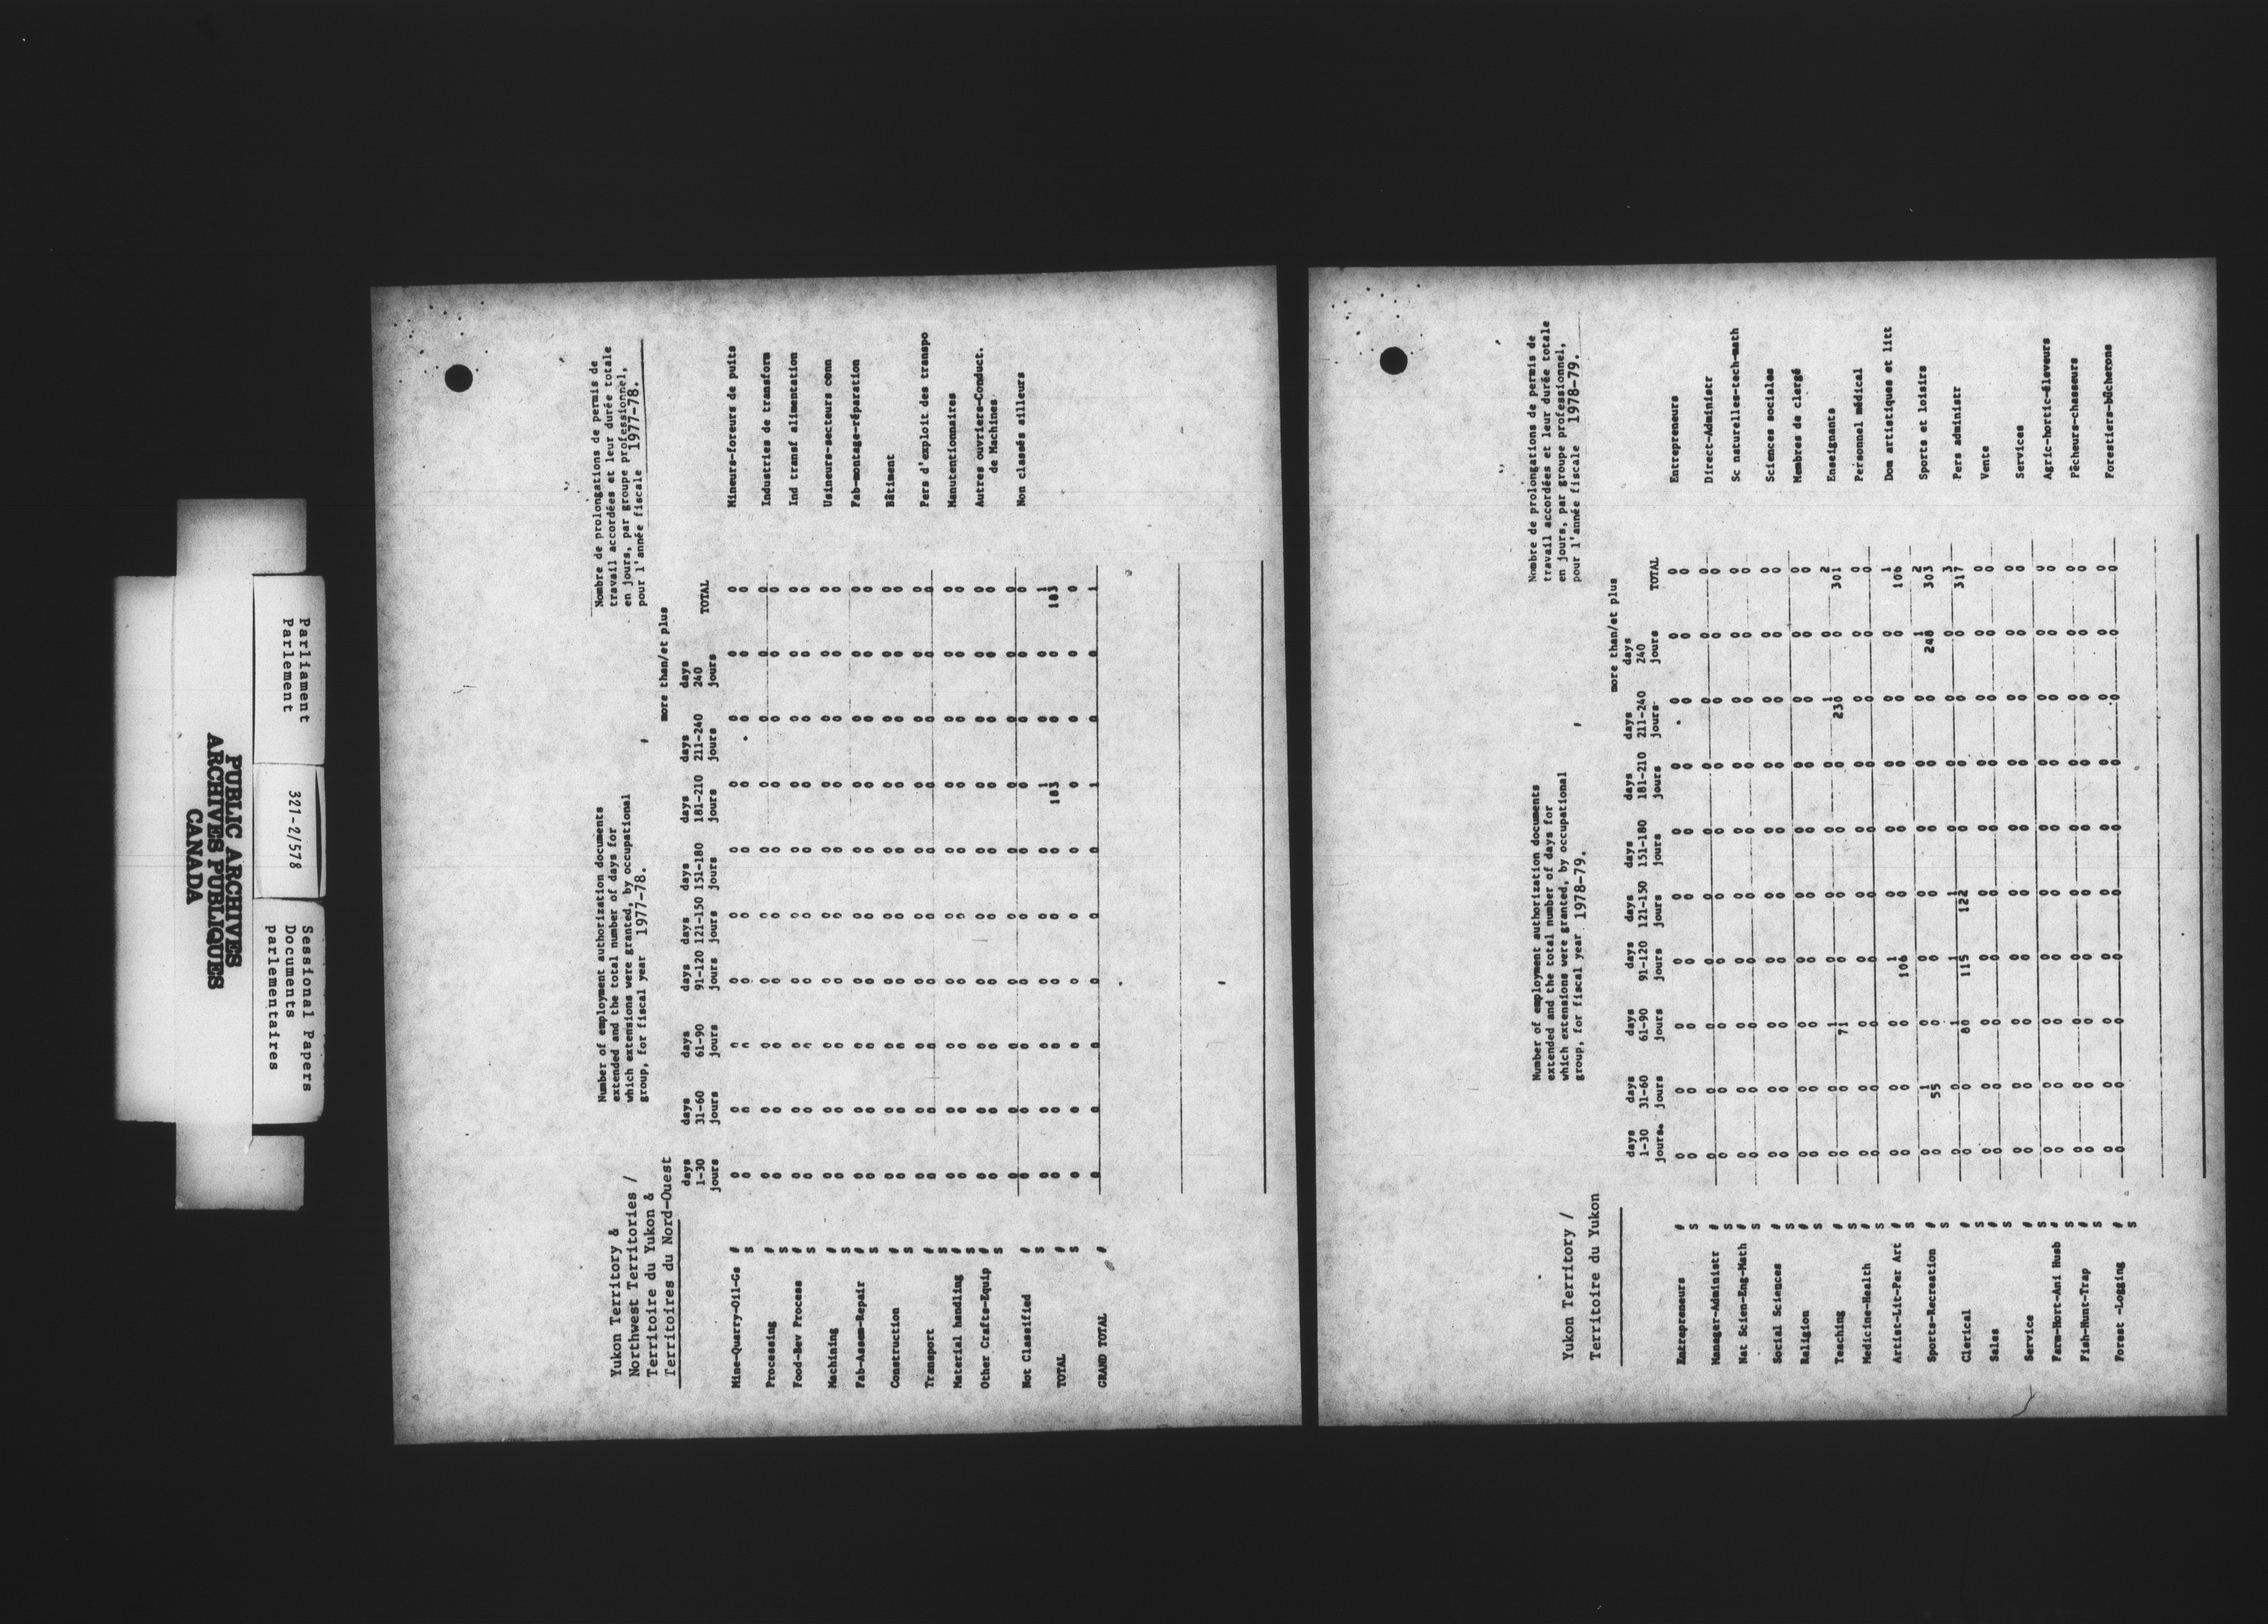 PUBLIC ARCHIVES
ARCHIVES PUBLIQUES
CANADA
Parliament
Parlement
321-2/578
Sessional Papers
Documents
parlementaires
Yukon Territory &
Northwest Territories /
Territoire du Yukon &
Territoires du Nord-Ouest
Number of employment authorization documents
extended and the total number of days for
which extensions were granted, by occupational
group, for fiscal year 1977-78.
Nombre de prolongations de permis de
travail accordées et leur durée totale
en jours, par groupe professionnel,
pour l'année fiscale 1977-78.
more than/et plus
days days days days days days days days days
1-30 31-60 61-90 91-120 121-150 151-180 181-210 211-240 240 TOTAL
jours jours jours jours jours jours jours jours jours
Mine-Quarry-Oil-Gs # 0 0 0 0 0 0 0 0 0 0 Mineurs-foreurs de puits
S 0 0 0 0 0 0 0 0 0 0
Processing # 0 0 0 0 0 0 0 0 0 0 Industries de transform
S 0 0 0 0 0 0 0 0 0 0
Food-Bev Process # 0 0 0 0 0 0 0 0 0 0 Ind transf alimentation
S 0 0 0 0 0 0 0 0 0 0
Machining # 0 0 0 0 0 0 0 0 0 0 Usineurs-secteurs conn
S 0 0 0 0 0 0 0 0 0 0
Fab-Assem-Repair # 0 0 0 0 0 0 0 0 0 0 Fab-montage-réparation
S 0 0 0 0 0 0 0 0 0 0
Construction # 0 0 0 0 0 0 0 0 0 0 Bâtiment
S 0 0 0 0 0 0 0 0 0 0
Transport # 0 0 0 0 0 0 0 0 0 0 Pers d'exploit des transpo
S 0 0 0 0 0 0 0 0 0 0
Material handling # 0 0 0 0 0 0 0 0 0 0 Manutentionnaires
S 0 0 0 0 0 0 0 0 0 0
Other Crafts-Equip # 0 0 0 0 0 0 0 0 0 0 Autres ouvriers-Conduct.
S 0 0 0 0 0 0 0 0 0 0 de Machines
Not Classified # 0 0 0 0 0 0 0 0 0 0 Non classés ailleurs
S 0 0 0 0 0 0 0 0 0 0
TOTAL # 0 0 0 0 0 0 1 0 0 1
S 0 0 0 0 0 0 183 0 0 183
0 0 0 0 0 0 0 0 0 0
GRAND TOTAL # 0 0 0 0 0 0 1 0 0 1
Yukon Territory /
Territoire du Yukon
Number of employment authorization documents
extended and the total number of days for
which extensions were granted, by occupational
group, for fiscal year 1978-79.
Nombre de prolongations de permis de
travail accordées et leur durée totale
en jours, par groupe professionnel,
pour l'année fiscale 1978-79.
more than/et plus
days days days days days days days days days
1-30 31-60 61-90 91-120 121-150 151-180 181-210 211-240 240 TOTAL
jours jours jours jours jours jours jours jours jours
Entrepreneurs # 0 0 0 0 0 0 0 0 0 0 Entrepreneurs
S 0 0 0 0 0 0 0 0 0 0
Manager-Administr # 0 0 0 0 0 0 0 0 0 0 Direct-Administr
S 0 0 0 0 0 0 0 0 0 0
Nat Scien-Eng-Math # 0 0 0 0 0 0 0 0 0 0 Sc naturelles-tech-math
S 0 0 0 0 0 0 0 0 0 0
Social Sciences # 0 0 0 0 0 0 0 0 0 0 Sciences sociales
S 0 0 0 0 0 0 0 0 0 0
Religion # 0 0 0 0 0 0 0 0 0 0 Membres de clergé
S 0 0 0 0 0 0 0 0 0 0
Teaching # 0 0 1 0 0 0 0 1 0 2 Enseignants
S 0 0 71 0 0 0 0 230 0 301
Medicine-Health # 0 0 0 0 0 0 0 0 0 0 Personnel médical
S 0 0 0 0 0 0 0 0 0 0
Artist-Lit-Per Art # 0 0 0 1 0 0 0 0 0 1 Dom artistiques et litt
S 0 0 0 106 0 0 0 0 0 106
Sports-Recreation # 0 1 0 0 0 0 0 0 1 2 Sports et loisirs
S 0 55 0 0 0 0 0 0 248 303
Clerical # 0 0 1 1 1 0 0 0 0 3 Pers administr
S 0 0 80 115 122 0 0 0 0 317
Sales # 0 0 0 0 0 0 0 0 0 0 Vente
S 0 0 0 0 0 0 0 0 0 0
Service # 0 0 0 0 0 0 0 0 0 0 Services
S 0 0 0 0 0 0 0 0 0 0
Farm-Hort-Ani Husb # 0 0 0 0 0 0 0 0 0 0 Agric-hortic-éleveurs
S 0 0 0 0 0 0 0 0 0 0
Fish-Hunt-Trap # 0 0 0 0 0 0 0 0 0 0 Pêcheurs-chasseurs
S 0 0 0 0 0 0 0 0 0 0
Forest -Logging # 0 0 0 0 0 0 0 0 0 0 Forestiers-bûcherons
S 0 0 0 0 0 0 0 0 0 0